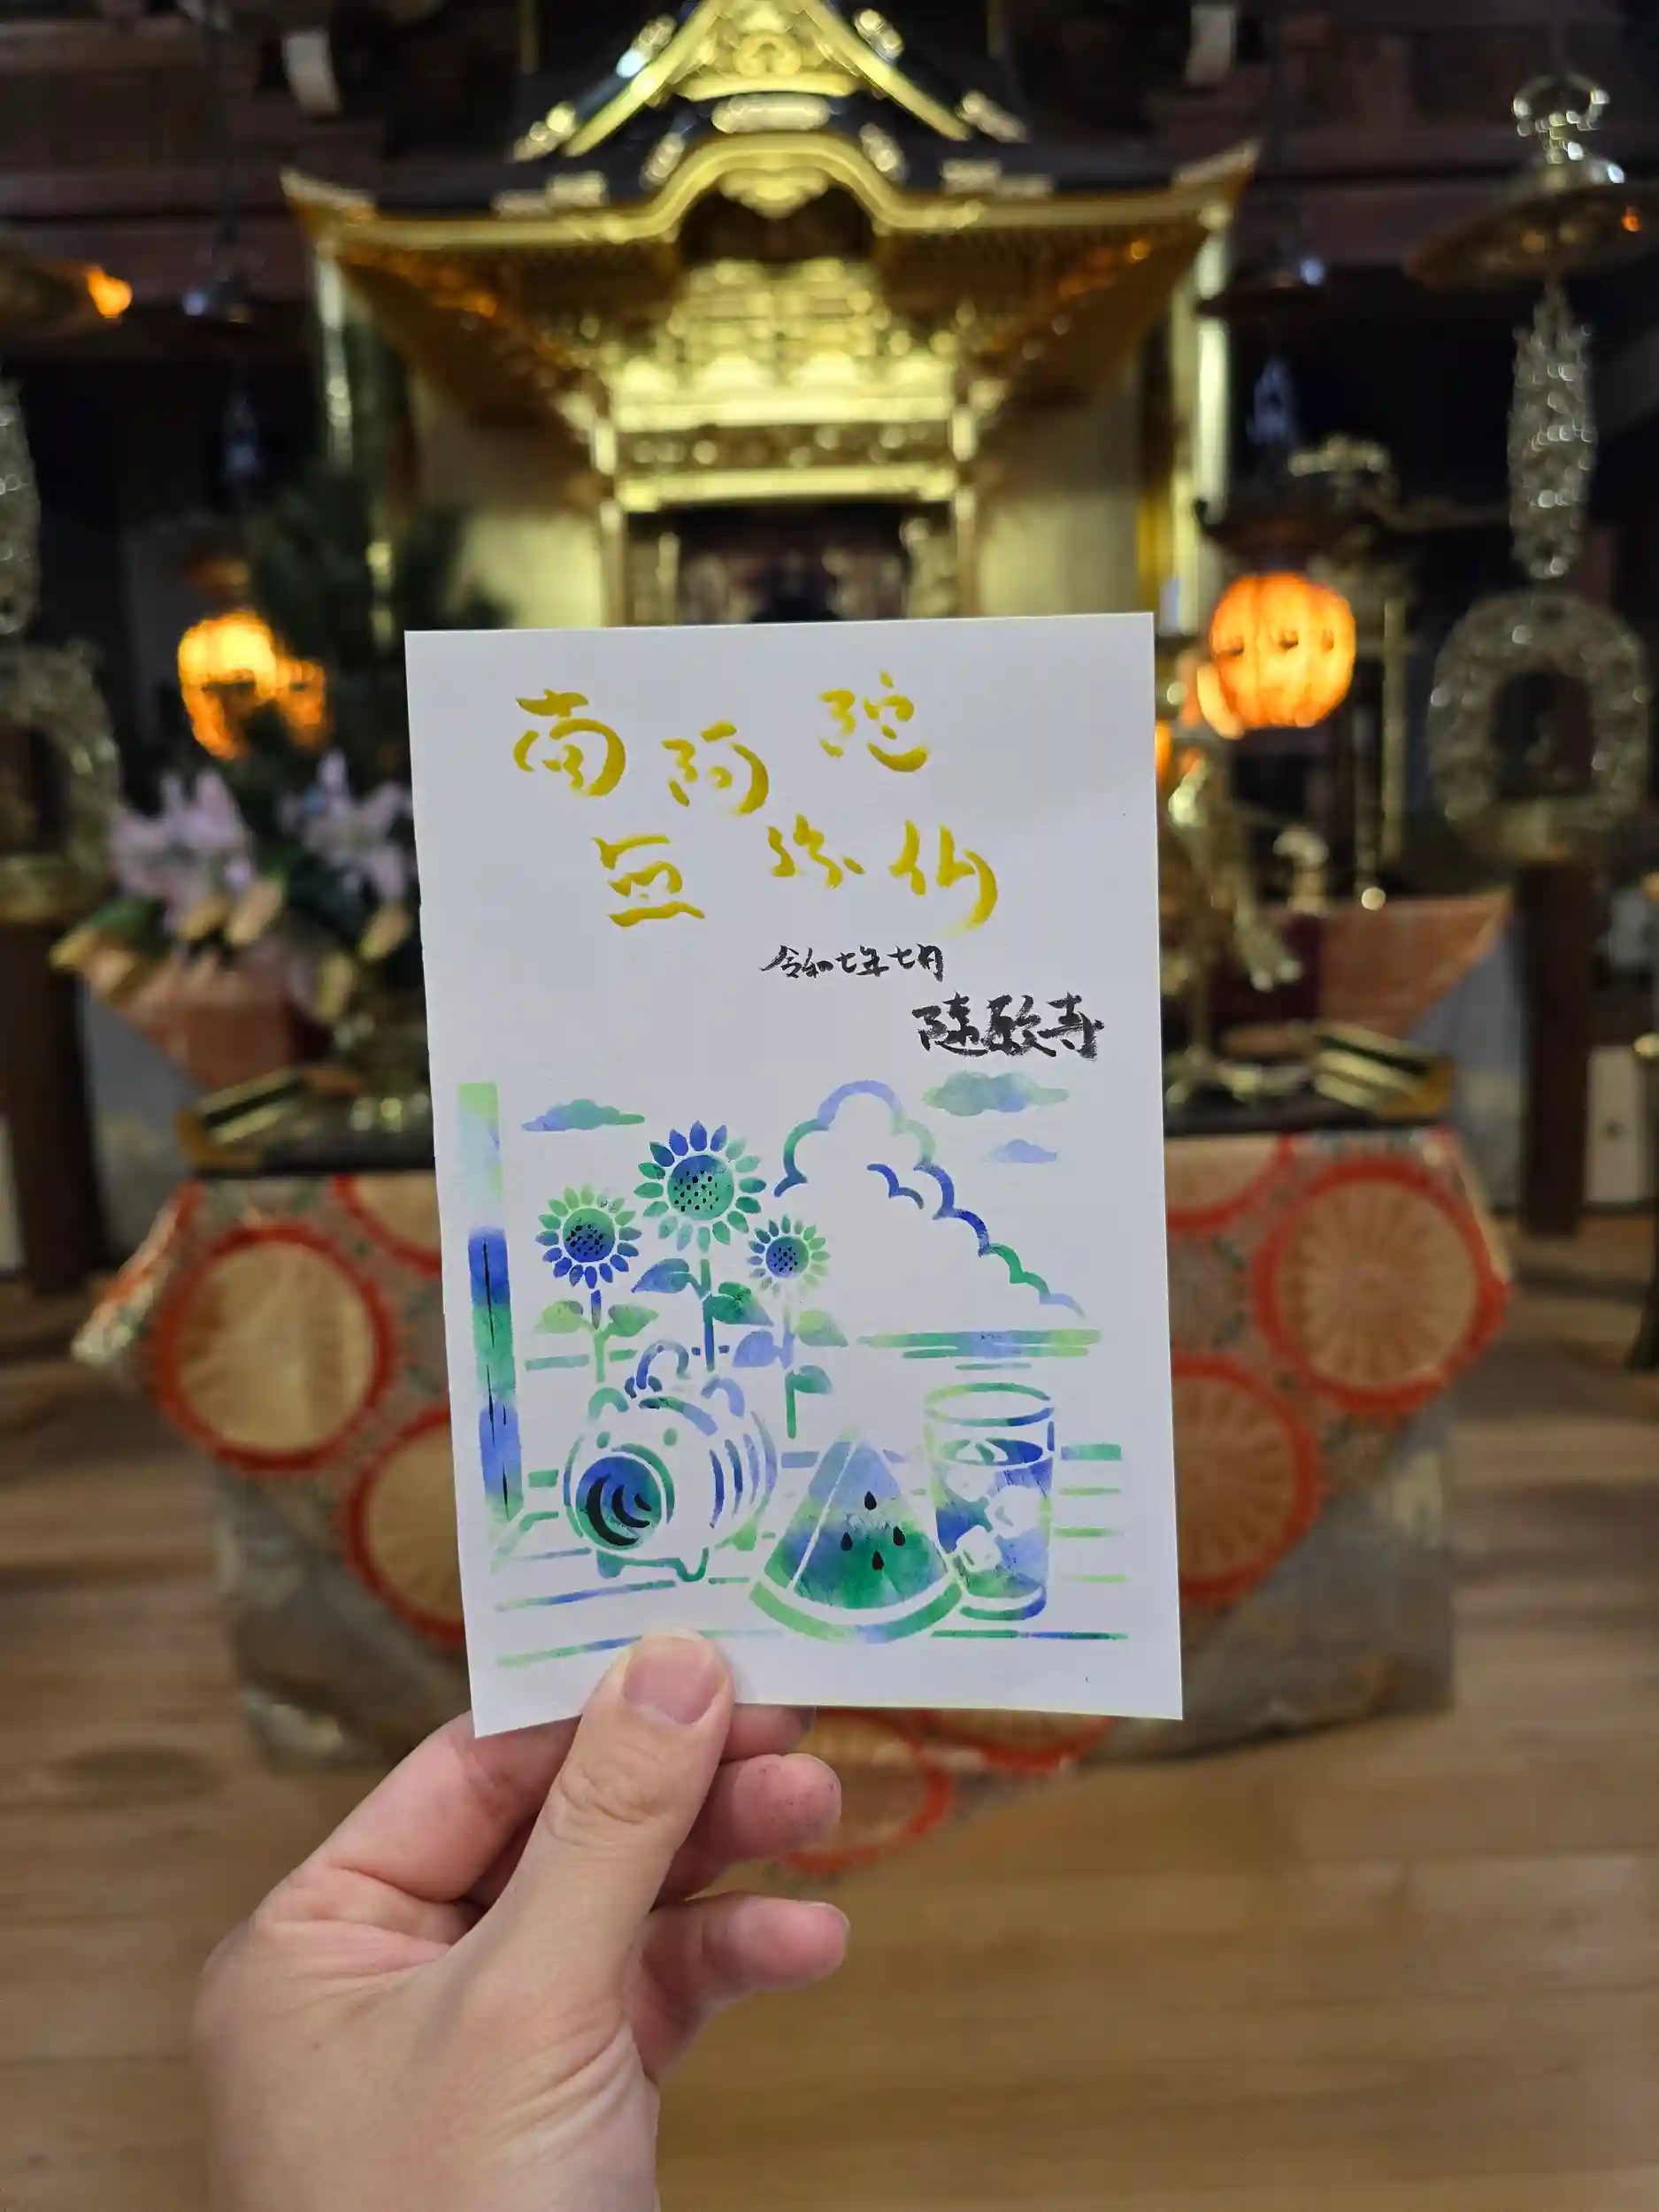 南無阿弥陀仏
令和七年七月
随願寺